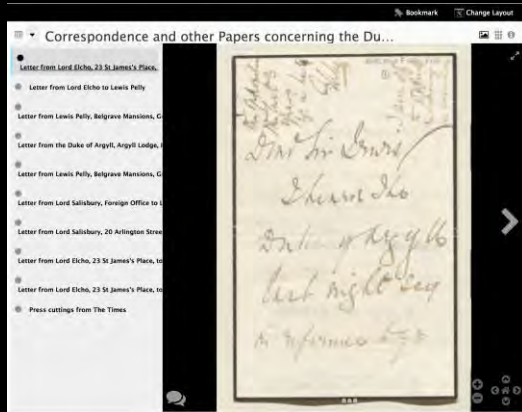 Bookmark
Change Layout
Correspondence and other Papers concerning the Du...
Letter from Lord Elcho, 23 St James's Place,
Letter from Lord Elcho to Lewis Pelly
Letter from Lewis Pelly, Belgrave Mansions, G
Letter from the Duke of Argyll, Argyll Lodge,
Letter from Lewis Pelly, Belgrave Mansions, G
Letter from Lord Salisbury, Foreign Office to L
Letter from Lord Salisbury, 20 Arlington Stree
Letter from Lord Elcho, 23 St James's Place, to
Letter from Lord Elcho, 23 St James's Place, to
Press cuttings from The Times
Dear Sir Lewis
I heard the
Duke of Argyll
last night say